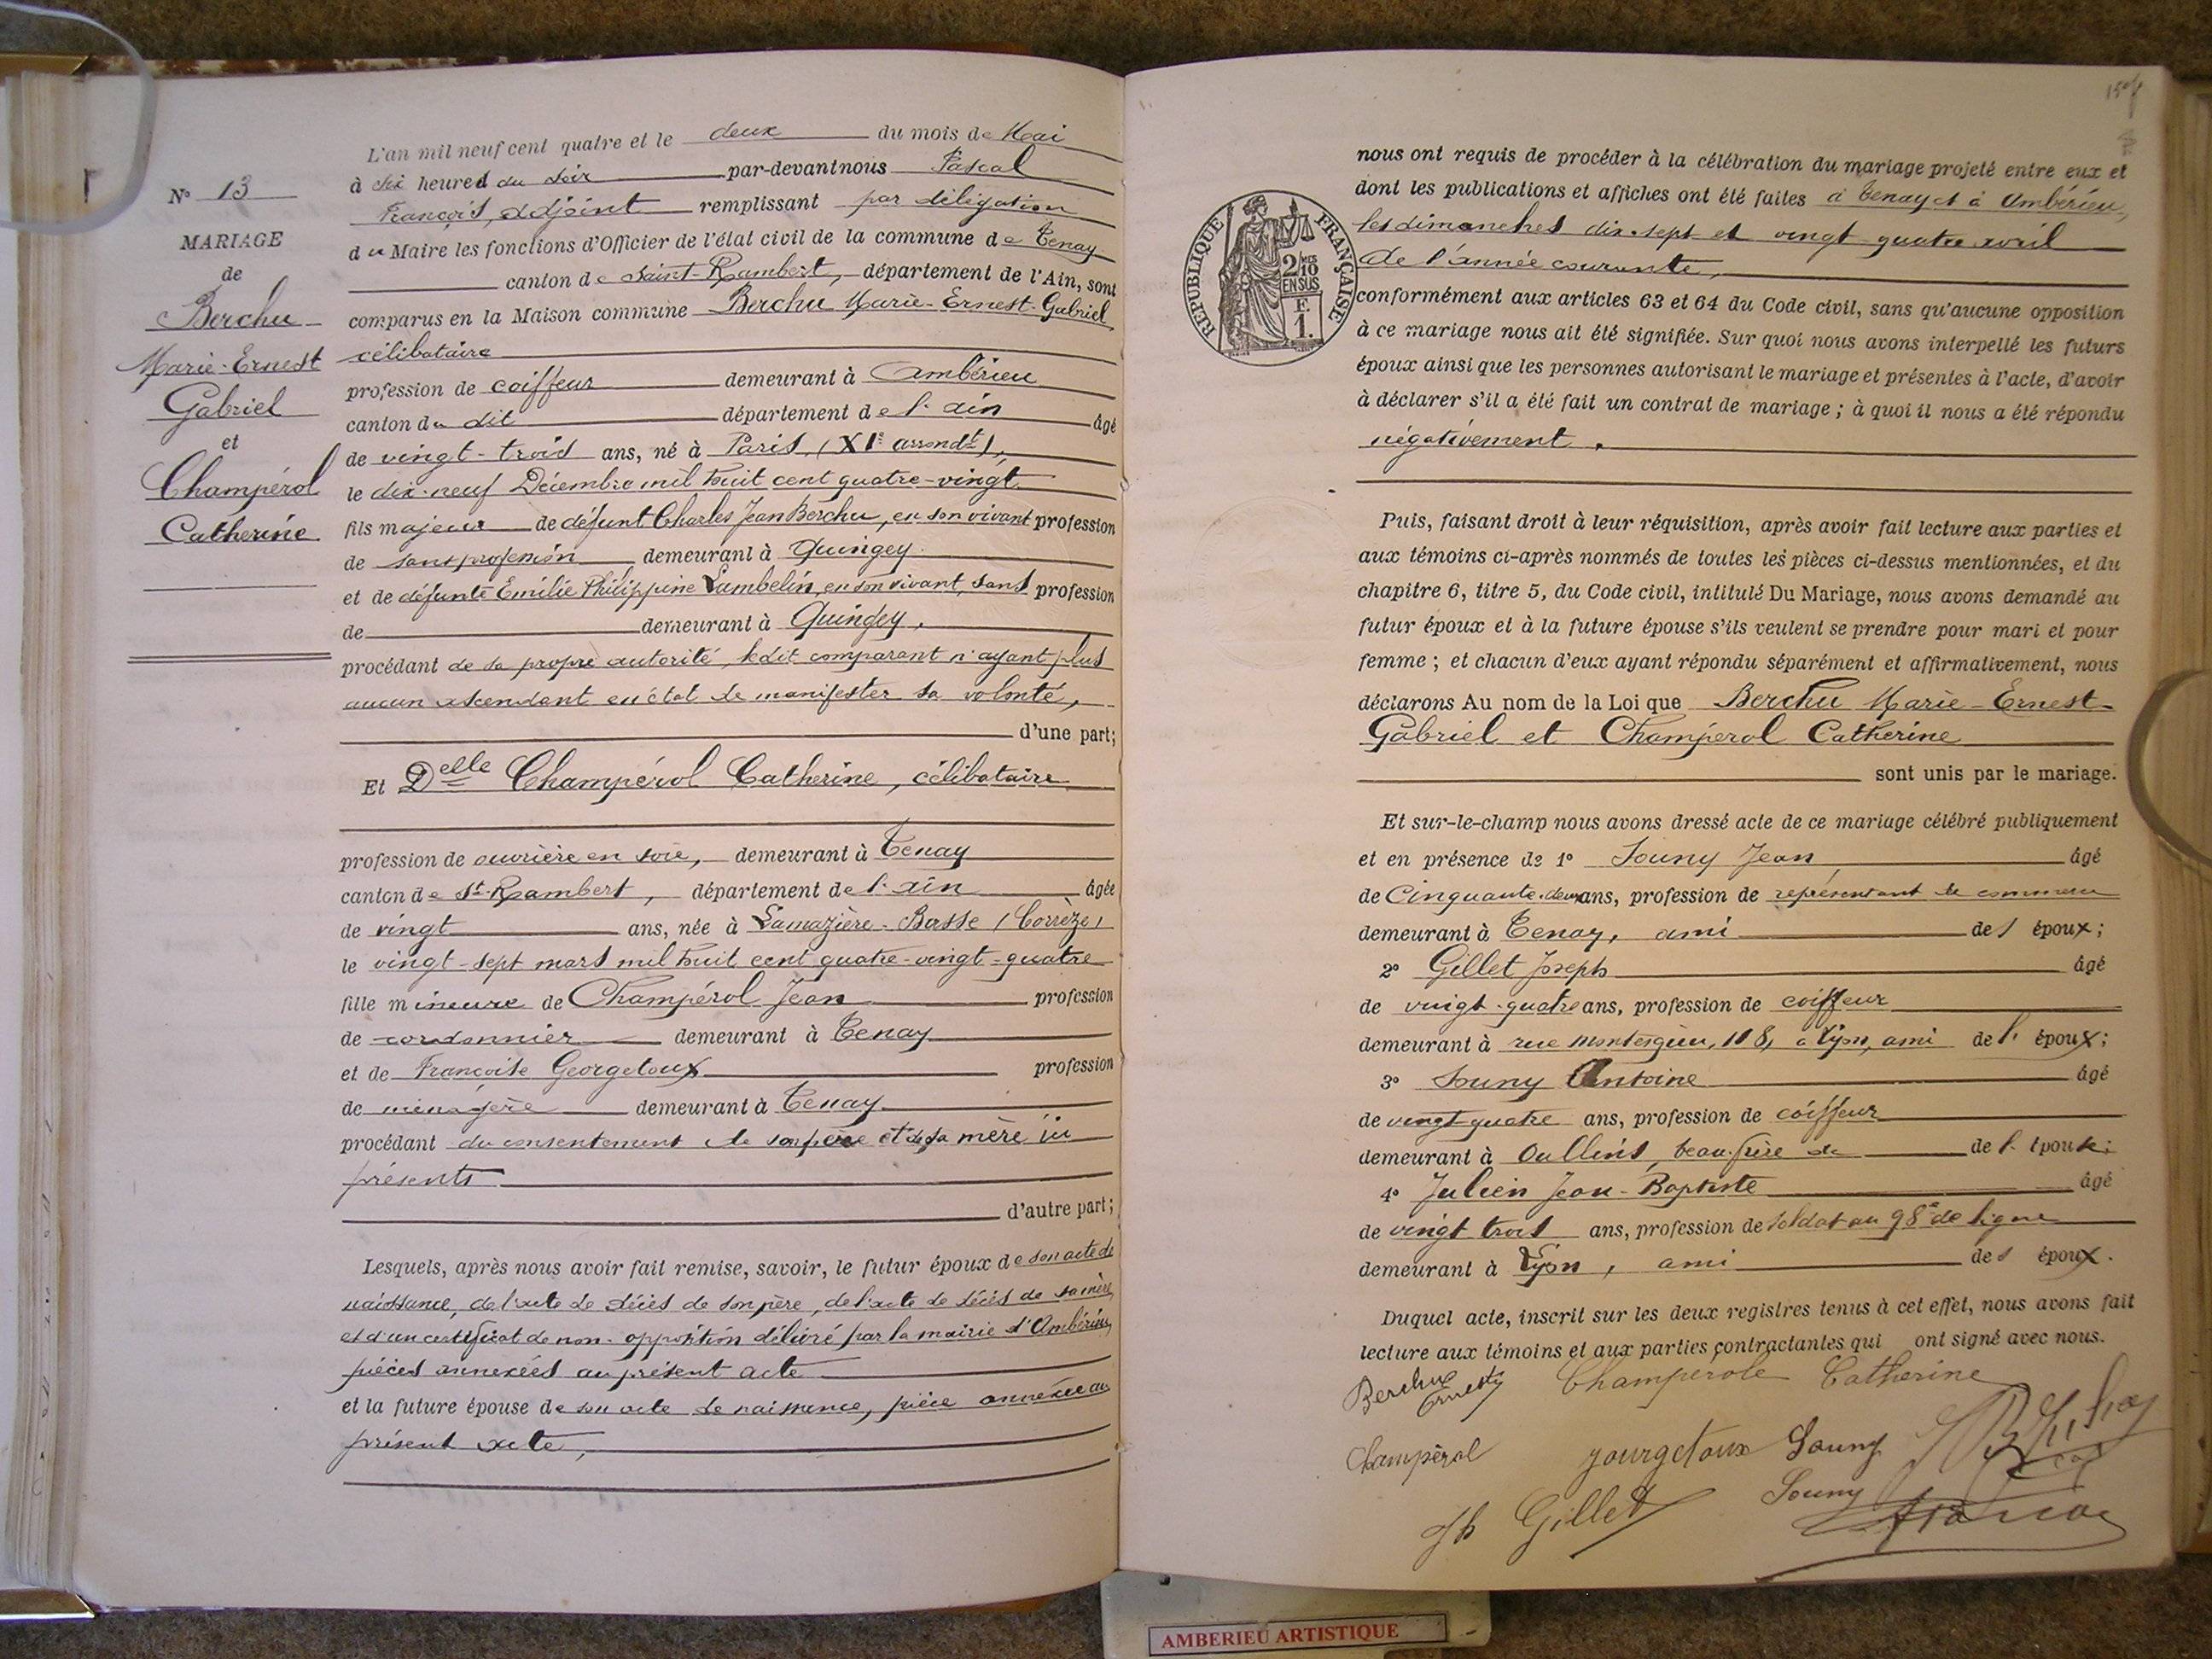 L'an mil neuf cent quatre et le deux du mois de Mai
à six heures du soir par-devant nous Pascal
François, adjoint remplissant par délégation
du Maire les fonctions d'Officier de l'état civil de la commune de Tenay
canton de Saint-Rambert, département de l'Ain, sont
comparus en la Maison commune Berchu Marie-Ernest-Gabriel,
célibataire
profession de coiffeur demeurant à Ambérieu
canton du dit département de l'ain âgé
de vingt-trois ans, né à Paris, (XIe arrondt),
le dix-neuf Décembre mil huit cent quatre-vingt
fils majeur de défunt Charles Jean Berchu, en son vivant profession
de sans profession demeurant à Quingey
et de défunte Emilie Philippine Lambelin, en son vivant, sans profession
de demeurant à Quingey,
procédant de sa propre autorité, ledit comparant n'ayant plus
aucun ascendant en état de manifester sa volonté,
d'une part;
Et Delle Champérol Catherine, célibataire
profession de ouvrière en soie, demeurant à Tenay
canton de St-Rambert, département de l'ain âgée
de vingt ans, née à Lamazière-Basse (Corrèze)
le vingt-sept mars mil huit cent quatre-vingt-quatre
fille mineure de Champérol Jean profession
de cordonnier demeurant à Tenay
et de Françoise Georgetoux profession
de ménagère demeurant à Tenay
procédant du consentement de son père et de sa mère ici
présents
d'autre part;
Lesquels, après nous avoir fait remise, savoir, le futur époux de son acte de
naissance, de l'acte de décès de son père, de l'acte de décès de sa mère,
et d'un certificat de non-opposition délivré par la mairie d'Ambérieu,
pièces annexées au présent acte
et la future épouse de son acte de naissance, pièce annexée au
présent acte,
N° 13
MARIAGE
de
Berchu
Marie-Ernest
Gabriel
et
Champérol
Catherine
nous ont requis de procéder à la célébration du mariage projeté entre eux et
dont les publications et affiches ont été faites à Tenay et à Ambérieu,
les dimanches dix-sept et vingt-quatre avril
de l'année courante,
conformément aux articles 63 et 64 du Code civil, sans qu'aucune opposition
à ce mariage nous ait été signifiée. Sur quoi nous avons interpellé les futurs
époux ainsi que les personnes autorisant le mariage et présentes à l'acte, d'avoir
à déclarer s'il a été fait un contrat de mariage ; à quoi il nous a été répondu
négativement.
Puis, faisant droit à leur réquisition, après avoir fait lecture aux parties et
aux témoins ci-après nommés de toutes les pièces ci-dessus mentionnées, et du
chapitre 6, titre 5, du Code civil, intitulé Du Mariage, nous avons demandé au
futur époux et à la future épouse s'ils veulent se prendre pour mari et pour
femme ; et chacun d'eux ayant répondu séparément et affirmativement, nous
déclarons Au nom de la Loi que Berchu Marie-Ernest-
Gabriel et Champérol Catherine
sont unis par le mariage.
Et sur-le-champ nous avons dressé acte de ce mariage célébré publiquement
et en présence de 1° Souny Jean âgé
de Cinquante-deux ans, profession de représentant de commerce
demeurant à Tenay, ami des époux;
2° Gillet Joseph âgé
de vingt-quatre ans, profession de coiffeur
demeurant à rue Montesquieu, 118, à Lyon, ami de l' époux;
3° Souny Antoine âgé
de vingt-quatre ans, profession de coiffeur
demeurant à Oullins, beau-frère de de l' épouse;
4° Julien Jean-Baptiste âgé
de vingt trois ans, profession de soldat au 98e de ligne
demeurant à Lyon, ami des époux.
Duquel acte, inscrit sur les deux registres tenus à cet effet, nous avons fait
lecture aux témoins et aux parties contractantes qui ont signé avec nous.
Berchu Ernest Champérole Catherine
Champérol gourgetoux Souny
Jh Gillet Souny
RÉPUBLIQUE FRANÇAISE
2/10
EN SUS
E.
1.
AMBERIEU ARTISTIQUE